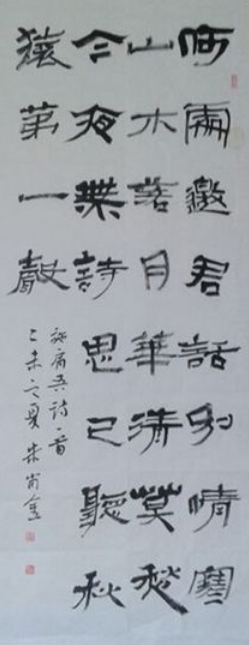 何處邀君話別情寒
山木落月華清莫愁
今夜無詩思已聽秋
猿第一聲
施肩吾詩一首
乙未之夏